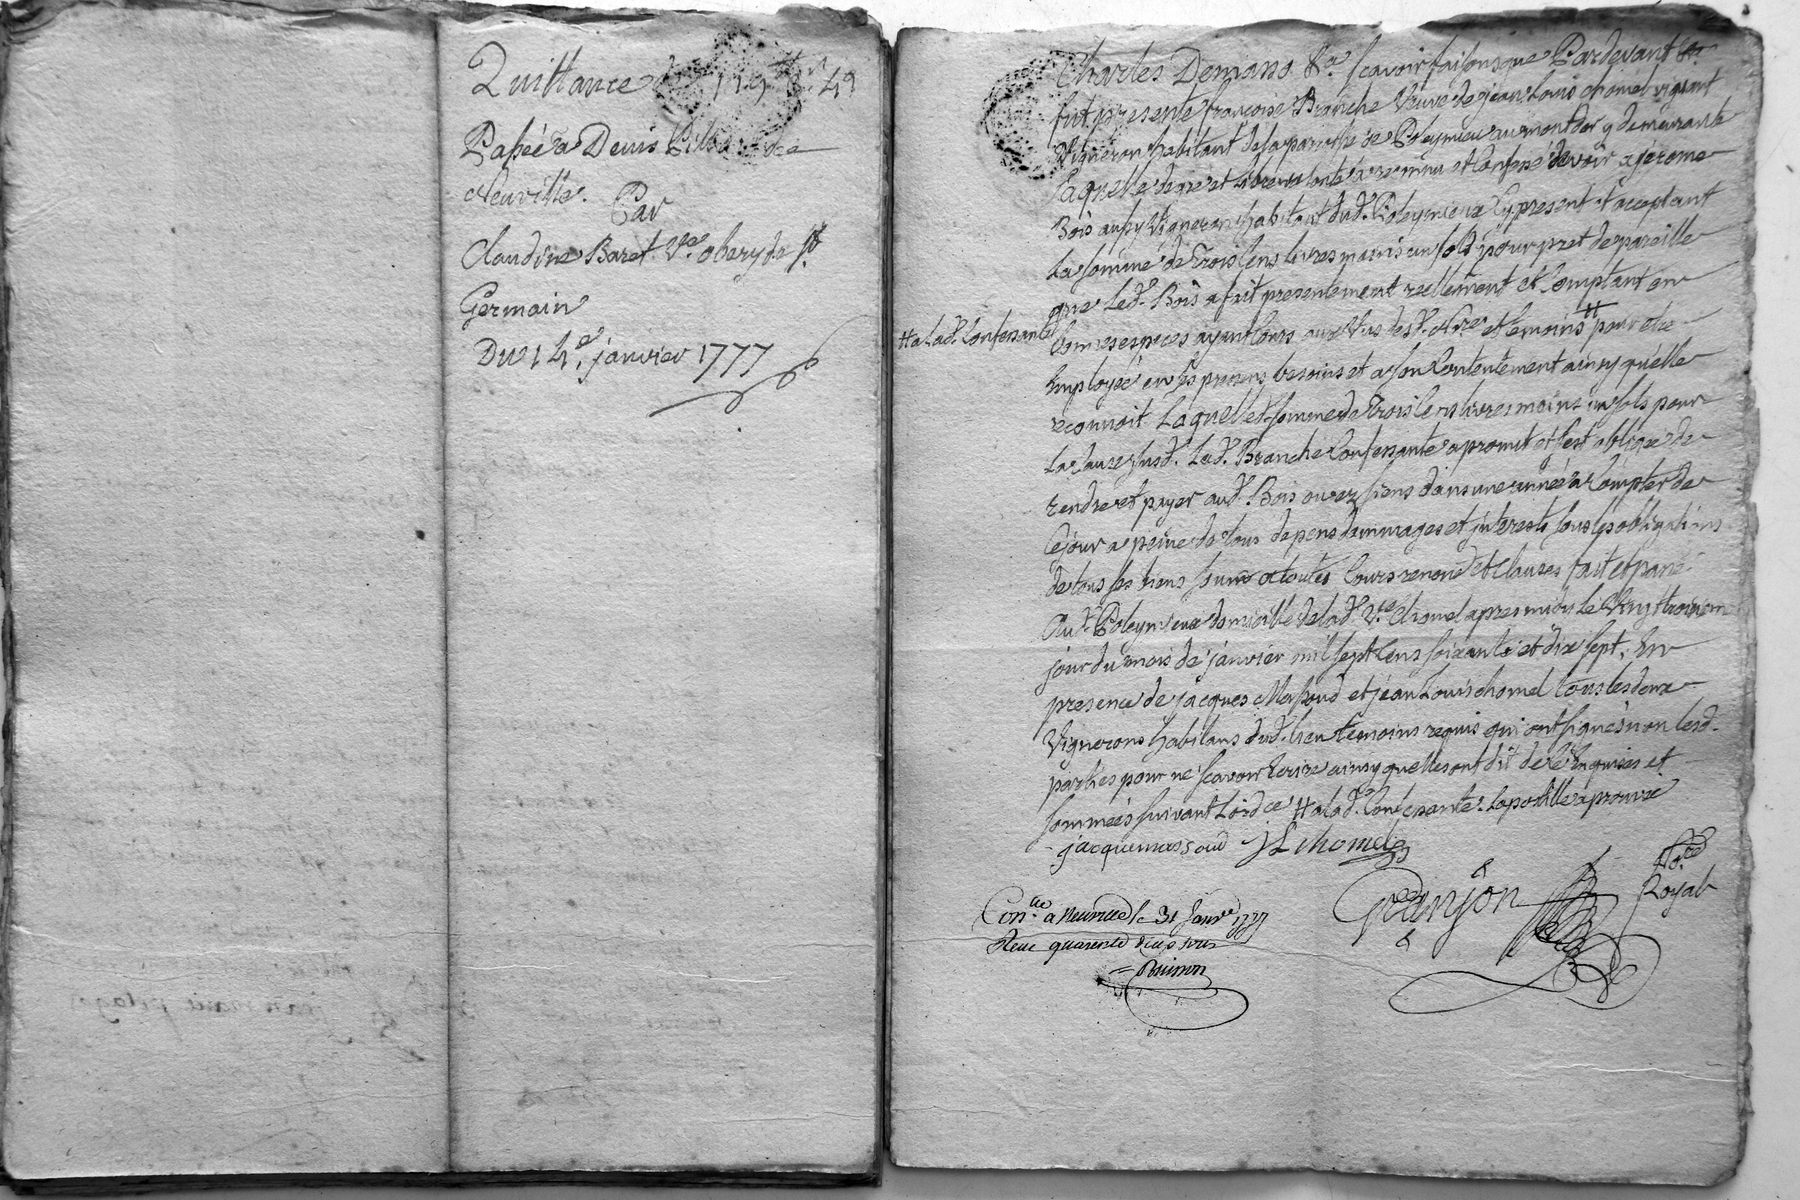 Quittance de 119 49
Passée a Denis
Neuville.
Par
Claudine Baret Ve obery de St
Germain
Du 14e janvier 1777
Charles Demans &a scavoir faisons que Pardevant &a
fut presente francoise Branche Veuve de jean Louis chomel vivant
Vigneron habitant de la paroisse de Poleymieu au mont d'or y demeurante
Laquelle de gré et libre volonté a reconnu et Confessé devoir a jerome
Bois aussy Vigneron habitant dud. Poleymieux Cy present et acceptant
La somme de Trois Cens livres moins un sols pour pret de pareille
que led. Bois a fait presentement reellement et Comptant en
# a lad. Confessante
bonnes especes ayant Cours aux Vus desd. Nre et temoins # pour etre
Employée en ses presens besoins et a son Contentement ainsy qu'elle
reconnoit Laquelle d. somme de Trois Cens livres moins un sols pour
La Cause susd. Lad. Branche Confessante a promit et s'est obligée de
rendre et payer aud. Bois ou ez siens dans une année a Compter de
Ce jour a peine de tous depens dommages et interests sous les obligations
de tous ses biens soumis a toutes Cours renoncé et Clauses fait et passé
Aud. Poleymieux domicille de lad. Ve Chomel apres midy le Vingt troisieme
jour du mois de janvier mil sept Cens soixante et dix sept, En
presence de jacques Massoud et jean Louis chomel tous les deux
Vignerons habitans dud. lieu temoins requis qui ont signés non lesd.
parties pour ne scavoir Ecrire ainsy quelles ont dit de Ce Enquises et
sommées suivant L'ordce # a lad. Confessante. La postille aprouvée
jacque massoud JL chomel
Granjon
No.re
Royal
Con.lle a neuville le 31 Janv.e 1777
Recu quarente deux sous
Buisson